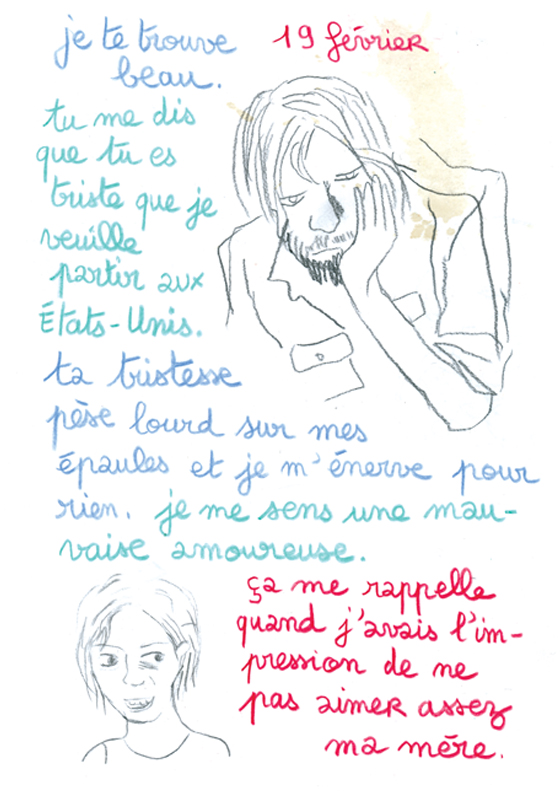 je te trouve
beau.
19 février
tu me dis
que tu es
triste que je
veuille
partir aux
États-Unis.
ta tristesse
pèse lourd sur mes
épaules et je m'énerve pour
rien. je me sens une mau-
vaise amoureuse.
ça me rappelle
quand j'avais l'im-
pression de ne
pas aimer assez
ma mére.